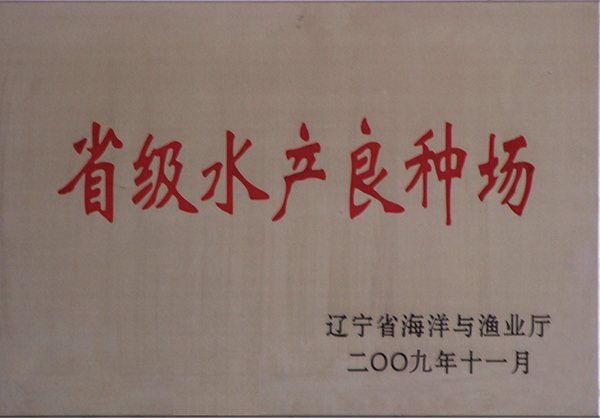 省级水产良种场
辽宁省海洋与渔业厅
二〇〇九年十一月